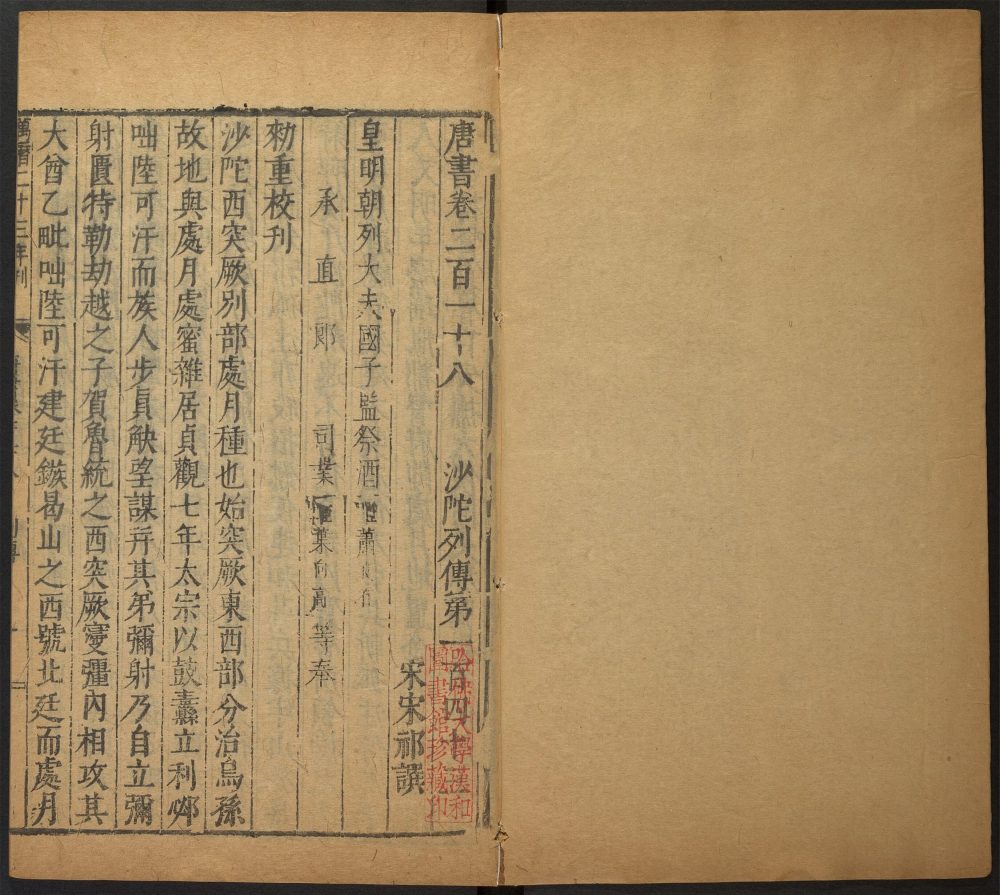 唐書卷二百一十八 沙陀列傳第一百四十三
宋宋祁譔
皇明朝列大夫國子監祭酒臣蕭
承直郎 司業臣葉向高等奉
勑重校刊
沙陀西突厥別部處月種也始突厥東西部分治烏孫
故地與處月處蜜雜居貞觀七年太宗以鼓纛立利邲
咄陸可汗而族人步真觖望謀并其弟彌射乃自立彌
射匱特勒劫越之子賀魯統之西突厥寖彊內相攻其
大酋乙毗咄陸可汗建廷鏃曷山之西號北廷而處月
萬曆二十三年刊
哈佛大學漢和
圖書館珍藏印